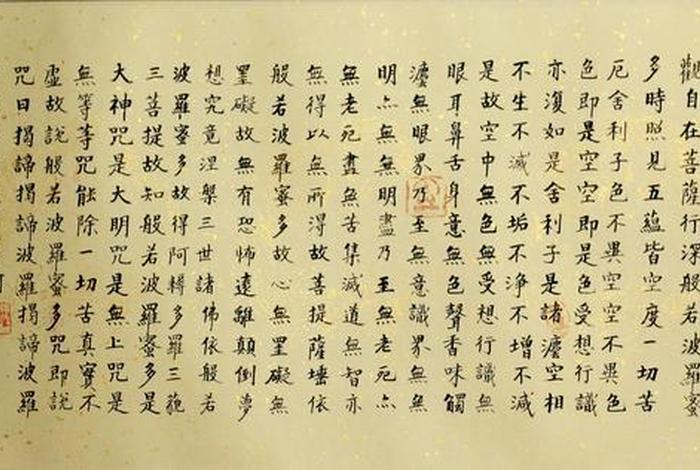 觀自在菩薩行深般若波羅蜜
多時照見五蘊皆空度一切苦
厄舍利子色不異空空不異色
色即是空空即是色受想行識
亦復如是舍利子是諸灋空相
不生不滅不垢不淨不增不減
是故空中無色無受想行識無
眼耳鼻舌身意無色聲香味觸
灋無眼界乃至無意識界無無
明亦無無明盡乃至無老死亦
無老死盡無苦集滅道無智亦
無得以無所得故菩提薩埵依
般若波羅蜜多故心無罣礙無
罣礙故無有恐怖遠離顛倒夢
想究竟涅槃三世諸佛依般若
波羅蜜多故得阿耨多羅三藐
三菩提故知般若波羅蜜多是
大神咒是大明咒是無上咒是
無等等咒能除一切苦真實不
虛故說般若波羅蜜多咒即說
咒曰揭諦揭諦波羅揭諦波羅